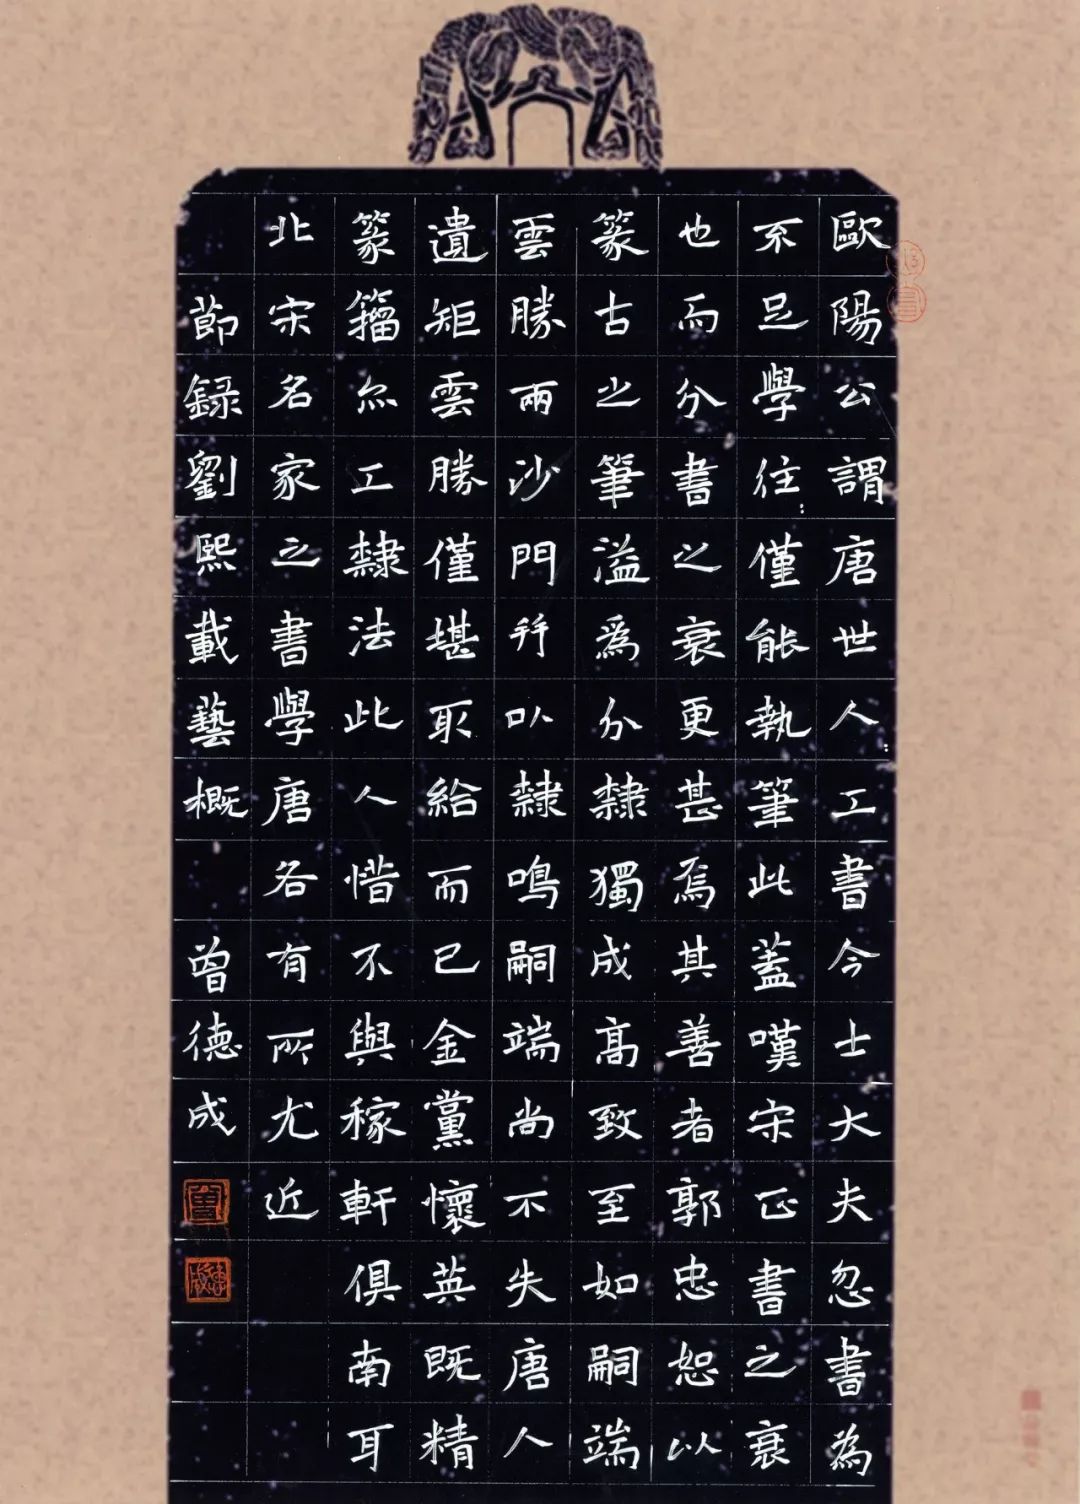 歐陽公謂唐世人工書今士大夫忽書為
不足學往僅能執筆此蓋嘆宋正書之衰
也而分書之衰更甚焉其善者郭忠恕以
篆古之筆溢爲分隸獨成高致至如嗣端
雲勝兩沙門并以隸鳴嗣端尚不失唐人
遺矩雲勝僅堪取給而已金黨懷英既精
篆籀亦工隸法此人惜不與稼軒俱南耳
北宋名家之書學唐各有所尤近
節録劉熙載藝概 曾德成